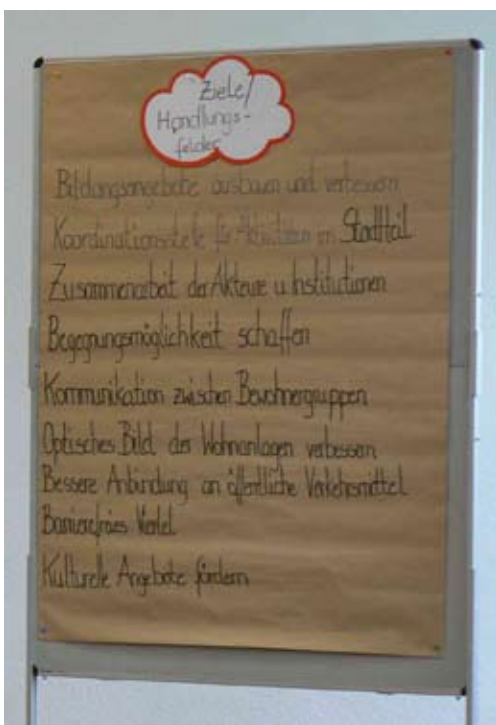 Ziele/
Handlungs-
felder
Bildungsangebote ausbauen und verbessern
Koordinationsstelle für Aktivitäten im Stadtteil
Zusammenarbeit der Akteure u. Institutionen
Begegnungsmöglichkeit schaffen
Kommunikation zwischen Bewohnergruppen
Optisches Bild der Wohnanlagen verbessern
Bessere Anbindung an öffentliche Verkehrsmittel
Barrierefreies Viertel
Kulturelle Angebote fördern